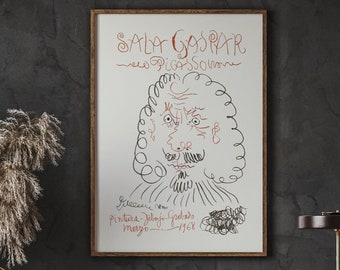 SALA GASPAR
PICASSO
Pintura-Dibujo-Grabado
Marzo 1968